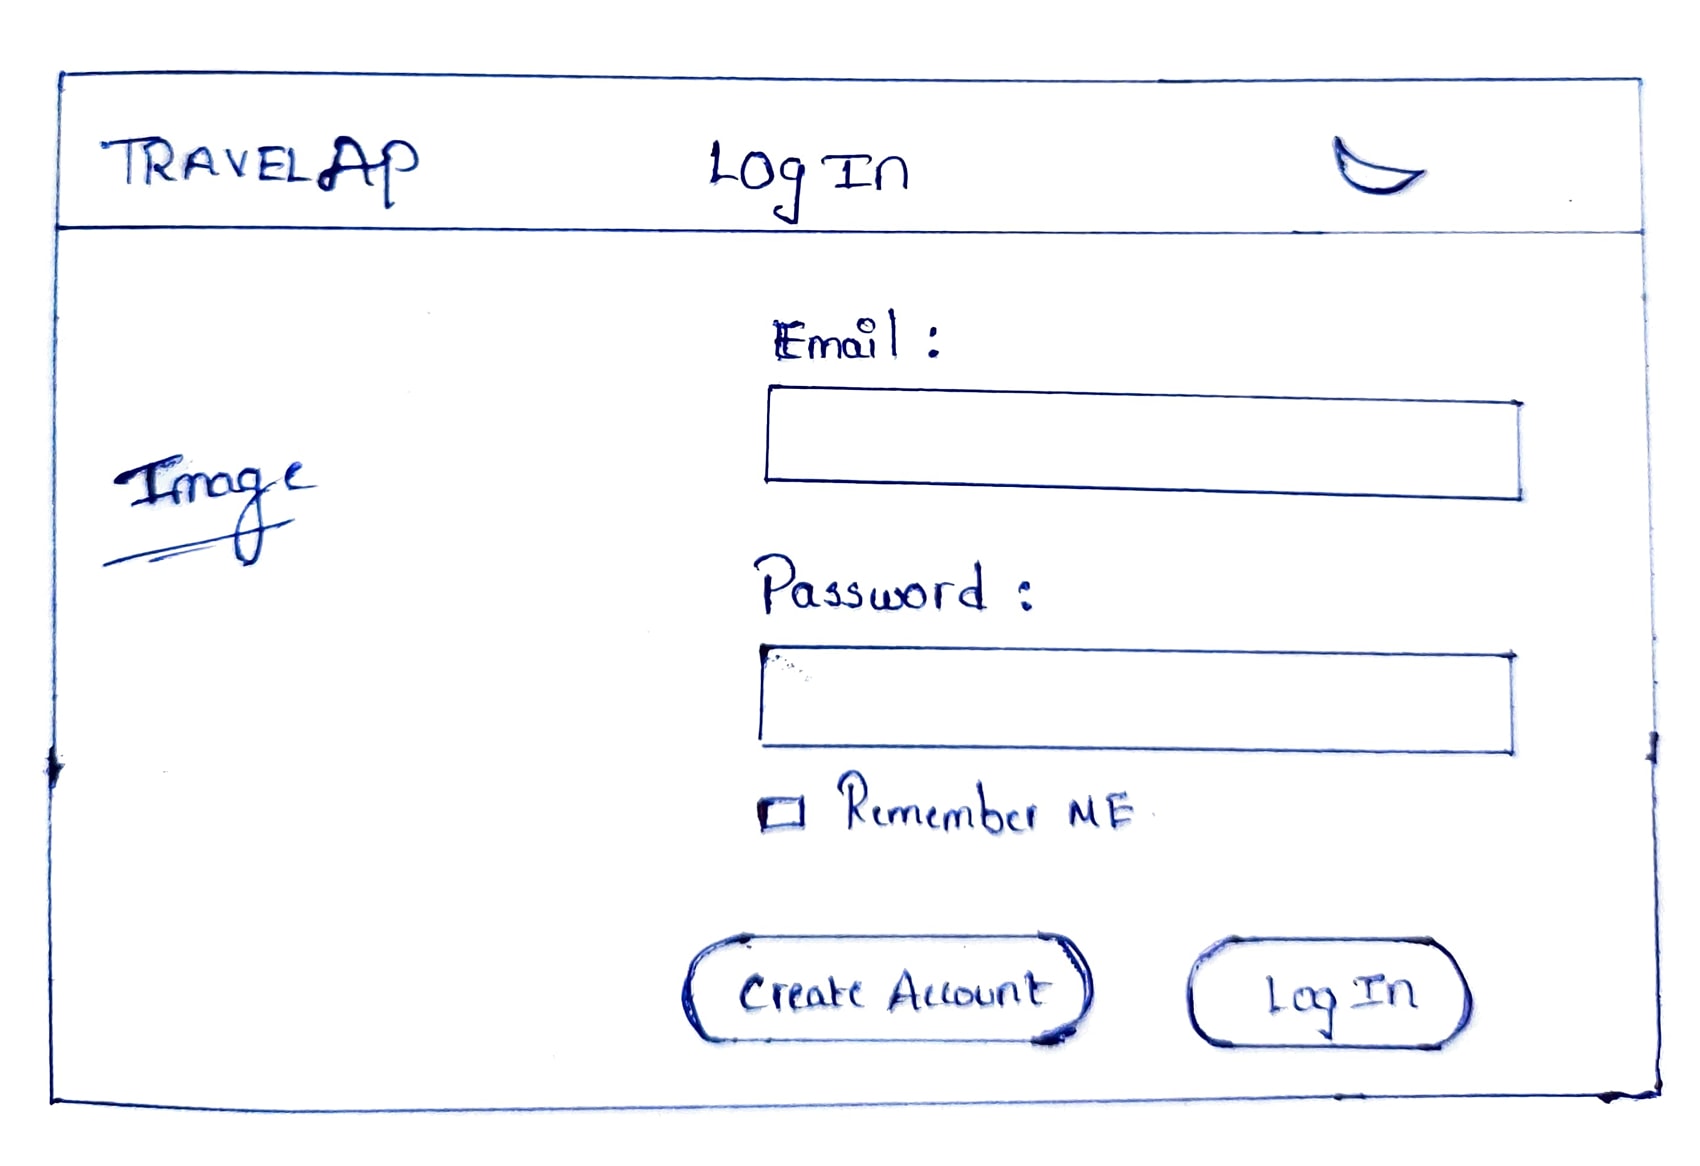 TRAVELAP
Log In
Email :
Image
Password :
Remember ME
Create Account
Log In